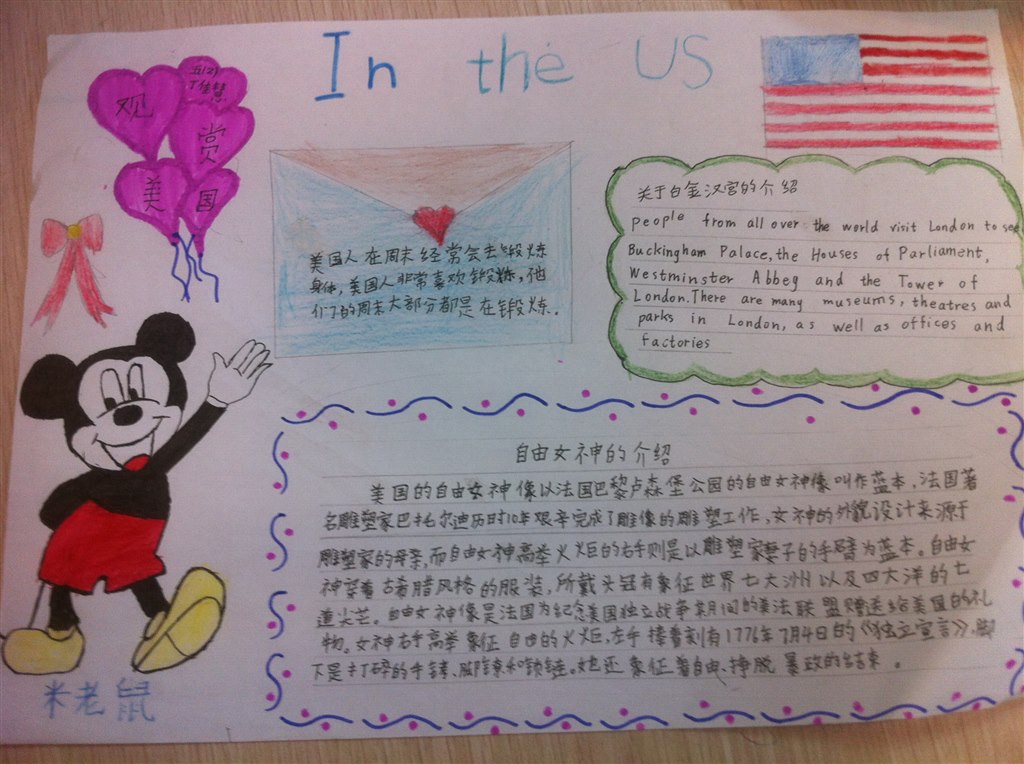 In the US
五(2)
丁佳慧
观
赏
美
国
美国人在周末经常会去锻炼
身体,美国人非常喜欢锻炼,他
们的周末大部分都是在锻炼.
关于白金汉宫的介绍
people from all over the world visit London to see
Buckingham Palace, the Houses of Parliament,
Westminster Abbeg and the Tower of
London. There are many museums, theatres and
parks in London, as well as offices and
factories
自由女神的介绍
美国的自由女神像以法国巴黎卢森堡公园的自由女神像叫作蓝本,法国著
名雕塑家巴托尔迪历时10年艰辛完成了雕像的雕塑工作,女神的外貌设计来源于
雕塑家的母亲,而自由女神高举火炬的右手则是以雕塑家妻子的手臂为蓝本。自由女
神穿着古希腊风格的服装,所戴头冠有象征世界七大洲以及四大洋的七
道尖芒。自由女神像是法国为纪念美国独立战争期间的美法联盟赠送给美国的礼
物。女神右手高举象征自由的火炬,左手捧着刻有1776年7月4日的《独立宣言》,脚
下是打碎的手铐、脚镣和锁链。她还象征着自由、挣脱暴政的结束。
米老鼠